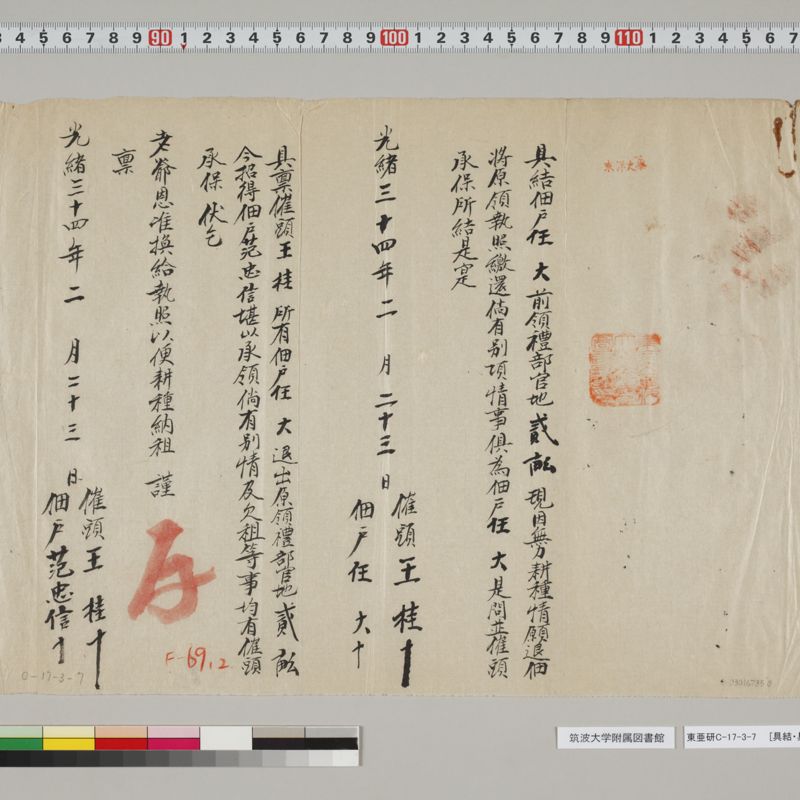 具結佃戶任 大 前領禮部官地 貳 畝 現因無力耕種情願退佃
將原領執照繳還倘有别項情事俱為佃戶任 大 是問並催頭
承保所結是寔
光緒 三 十四年 二 月 二十三 日
催頭 王 桂 十
佃戶 任 大 十
具禀催頭 王 桂 所有佃戶任 大 退出原領禮部官地 貳 畝
今招得佃戶范忠信堪以承領倘有别情及欠租等事均有催頭
承保 伏乞
老爺恩准換給執照以便耕種納租 謹
禀
光緒三十四年 二 月二十三 日
催頭 王 桂 十
佃戶范忠信 十
存
F-69,2
0-17-3-7
3 4 5 6 7 8 9 90 1 2 3 4 5 6 7 8 9 100 1 2 3 4 5 6 7 8 9 110 1 2 3 4 5 6 7
筑波大学附属図書館
東亜研C-17-3-7